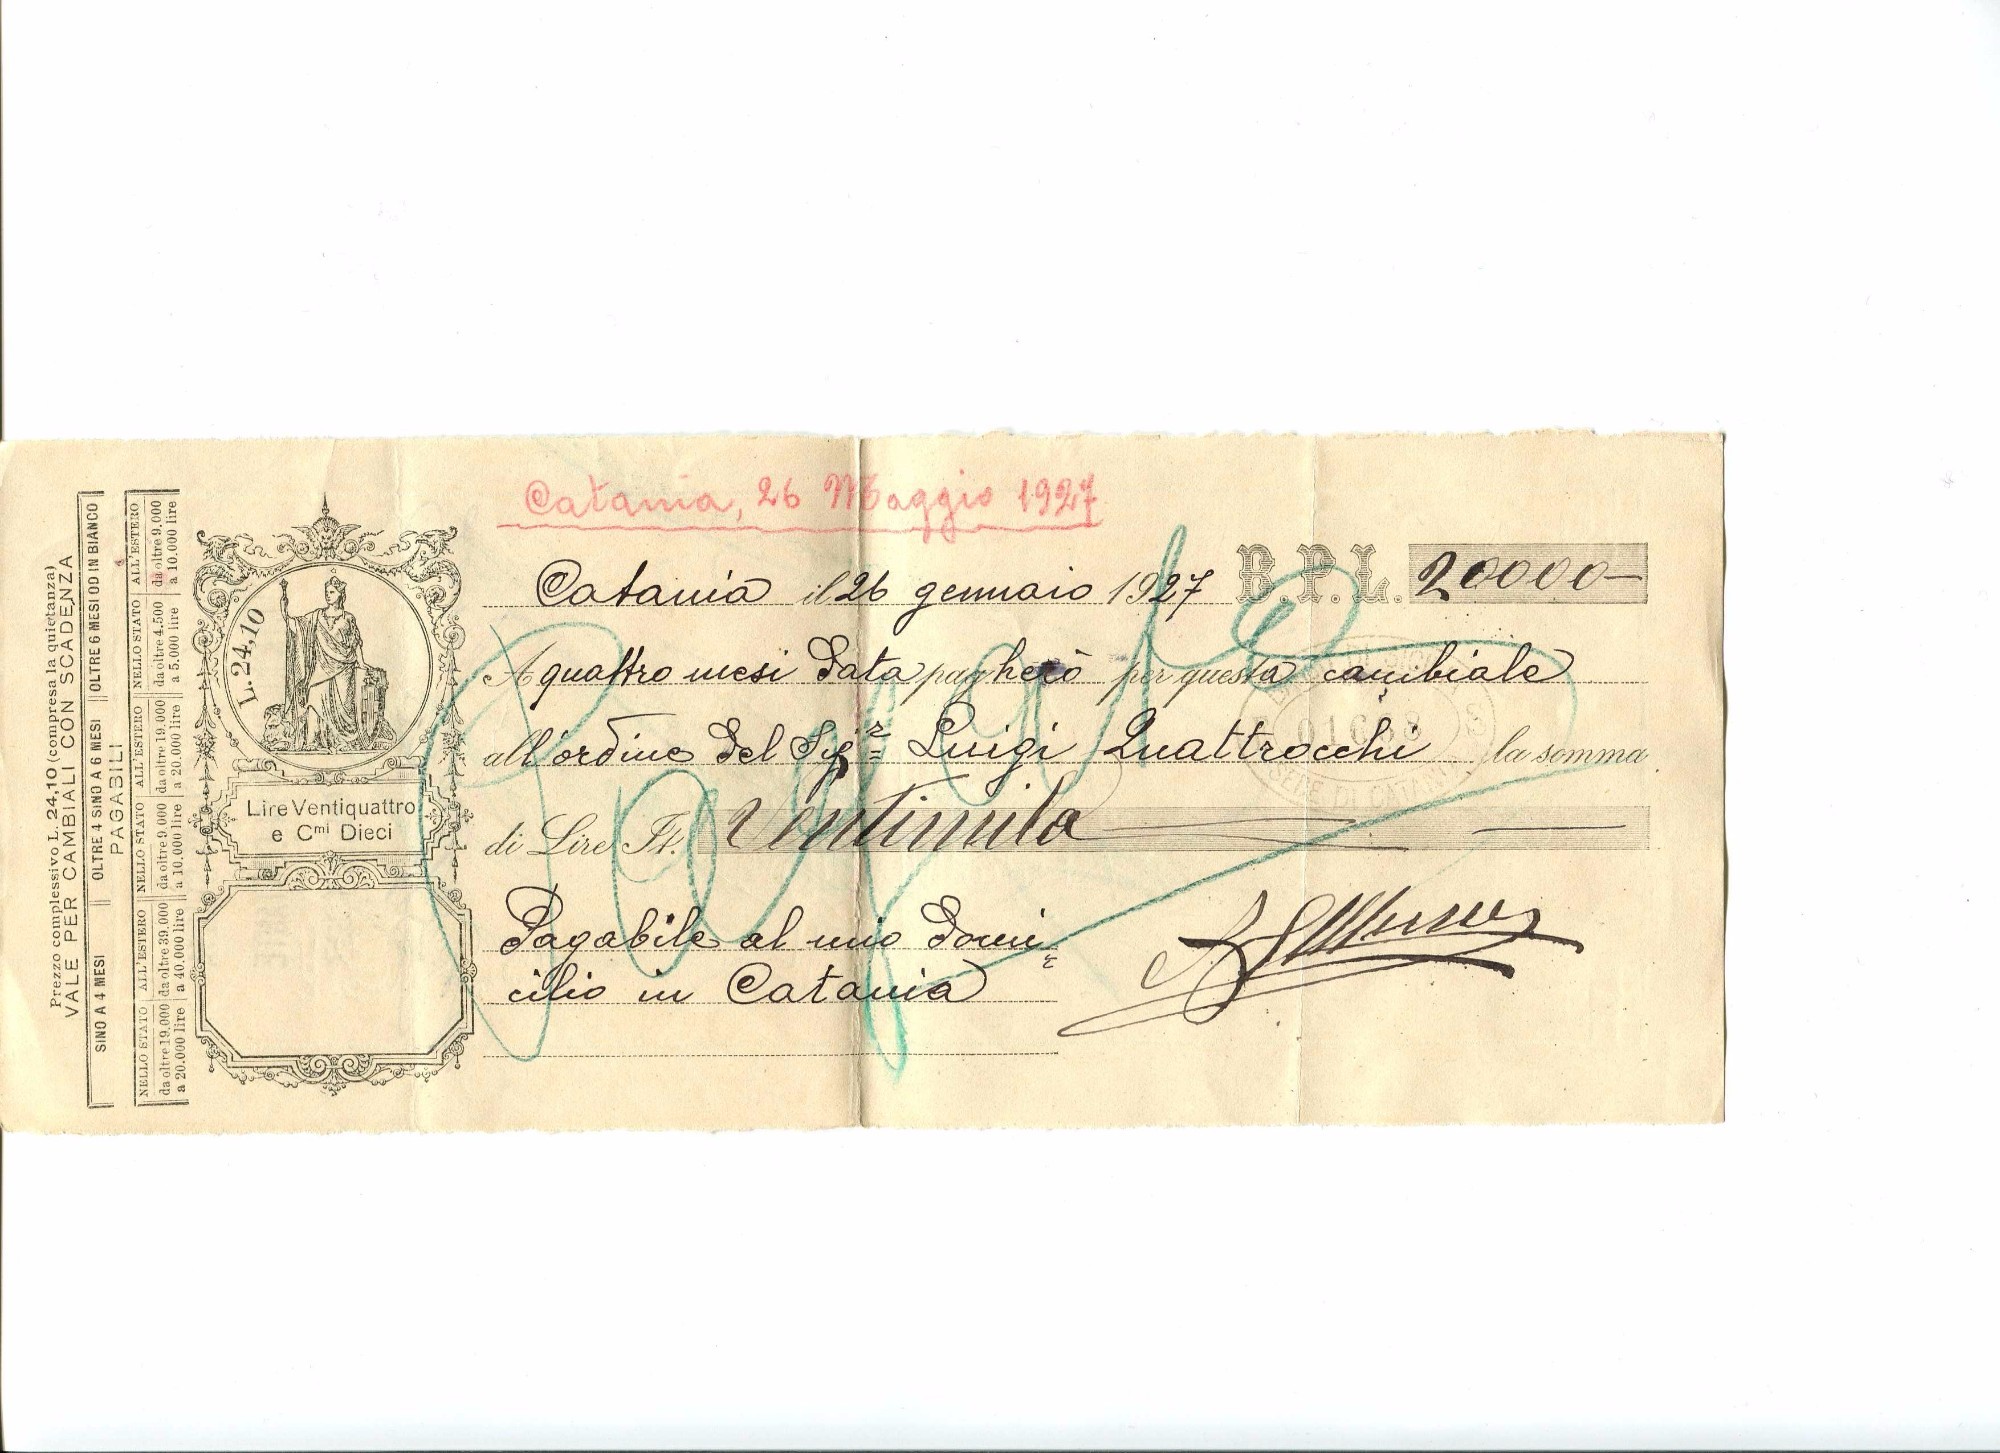 Prezzo complessivo L. 24,10 (compresa la quietanza)
VALE PER CAMBIALI CON SCADENZA
SINO A 4 MESI OLTRE 4 SINO A 6 MESI OLTRE 6 MESI OD IN BIANCO
PAGABILI
NELLO STATO ALL'ESTERO NELLO STATO ALL'ESTERO NELLO STATO ALL'ESTERO
da oltre 19.000 da oltre 39.000 da oltre 9.000 da oltre 19.000 da oltre 4.500 da oltre 9.000
a 20.000 lire a 40.000 lire a 10.000 lire a 20.000 lire a 5.000 lire a 10.000 lire
L. 24,10
Lire Ventiquattro
e Cmi Dieci
Catania, 26 Maggio 1927
Catania il 26 gennaio 1927 B.P.L. 20000—
A quattro mesi data pagherò per questa cambiale
all'ordine del Sigr Luigi Quattrocchi la somma
di Lire It. Ventimila
Pagabile al mio domi
cilio in Catania
Pagato
SEDE DI CATANIA